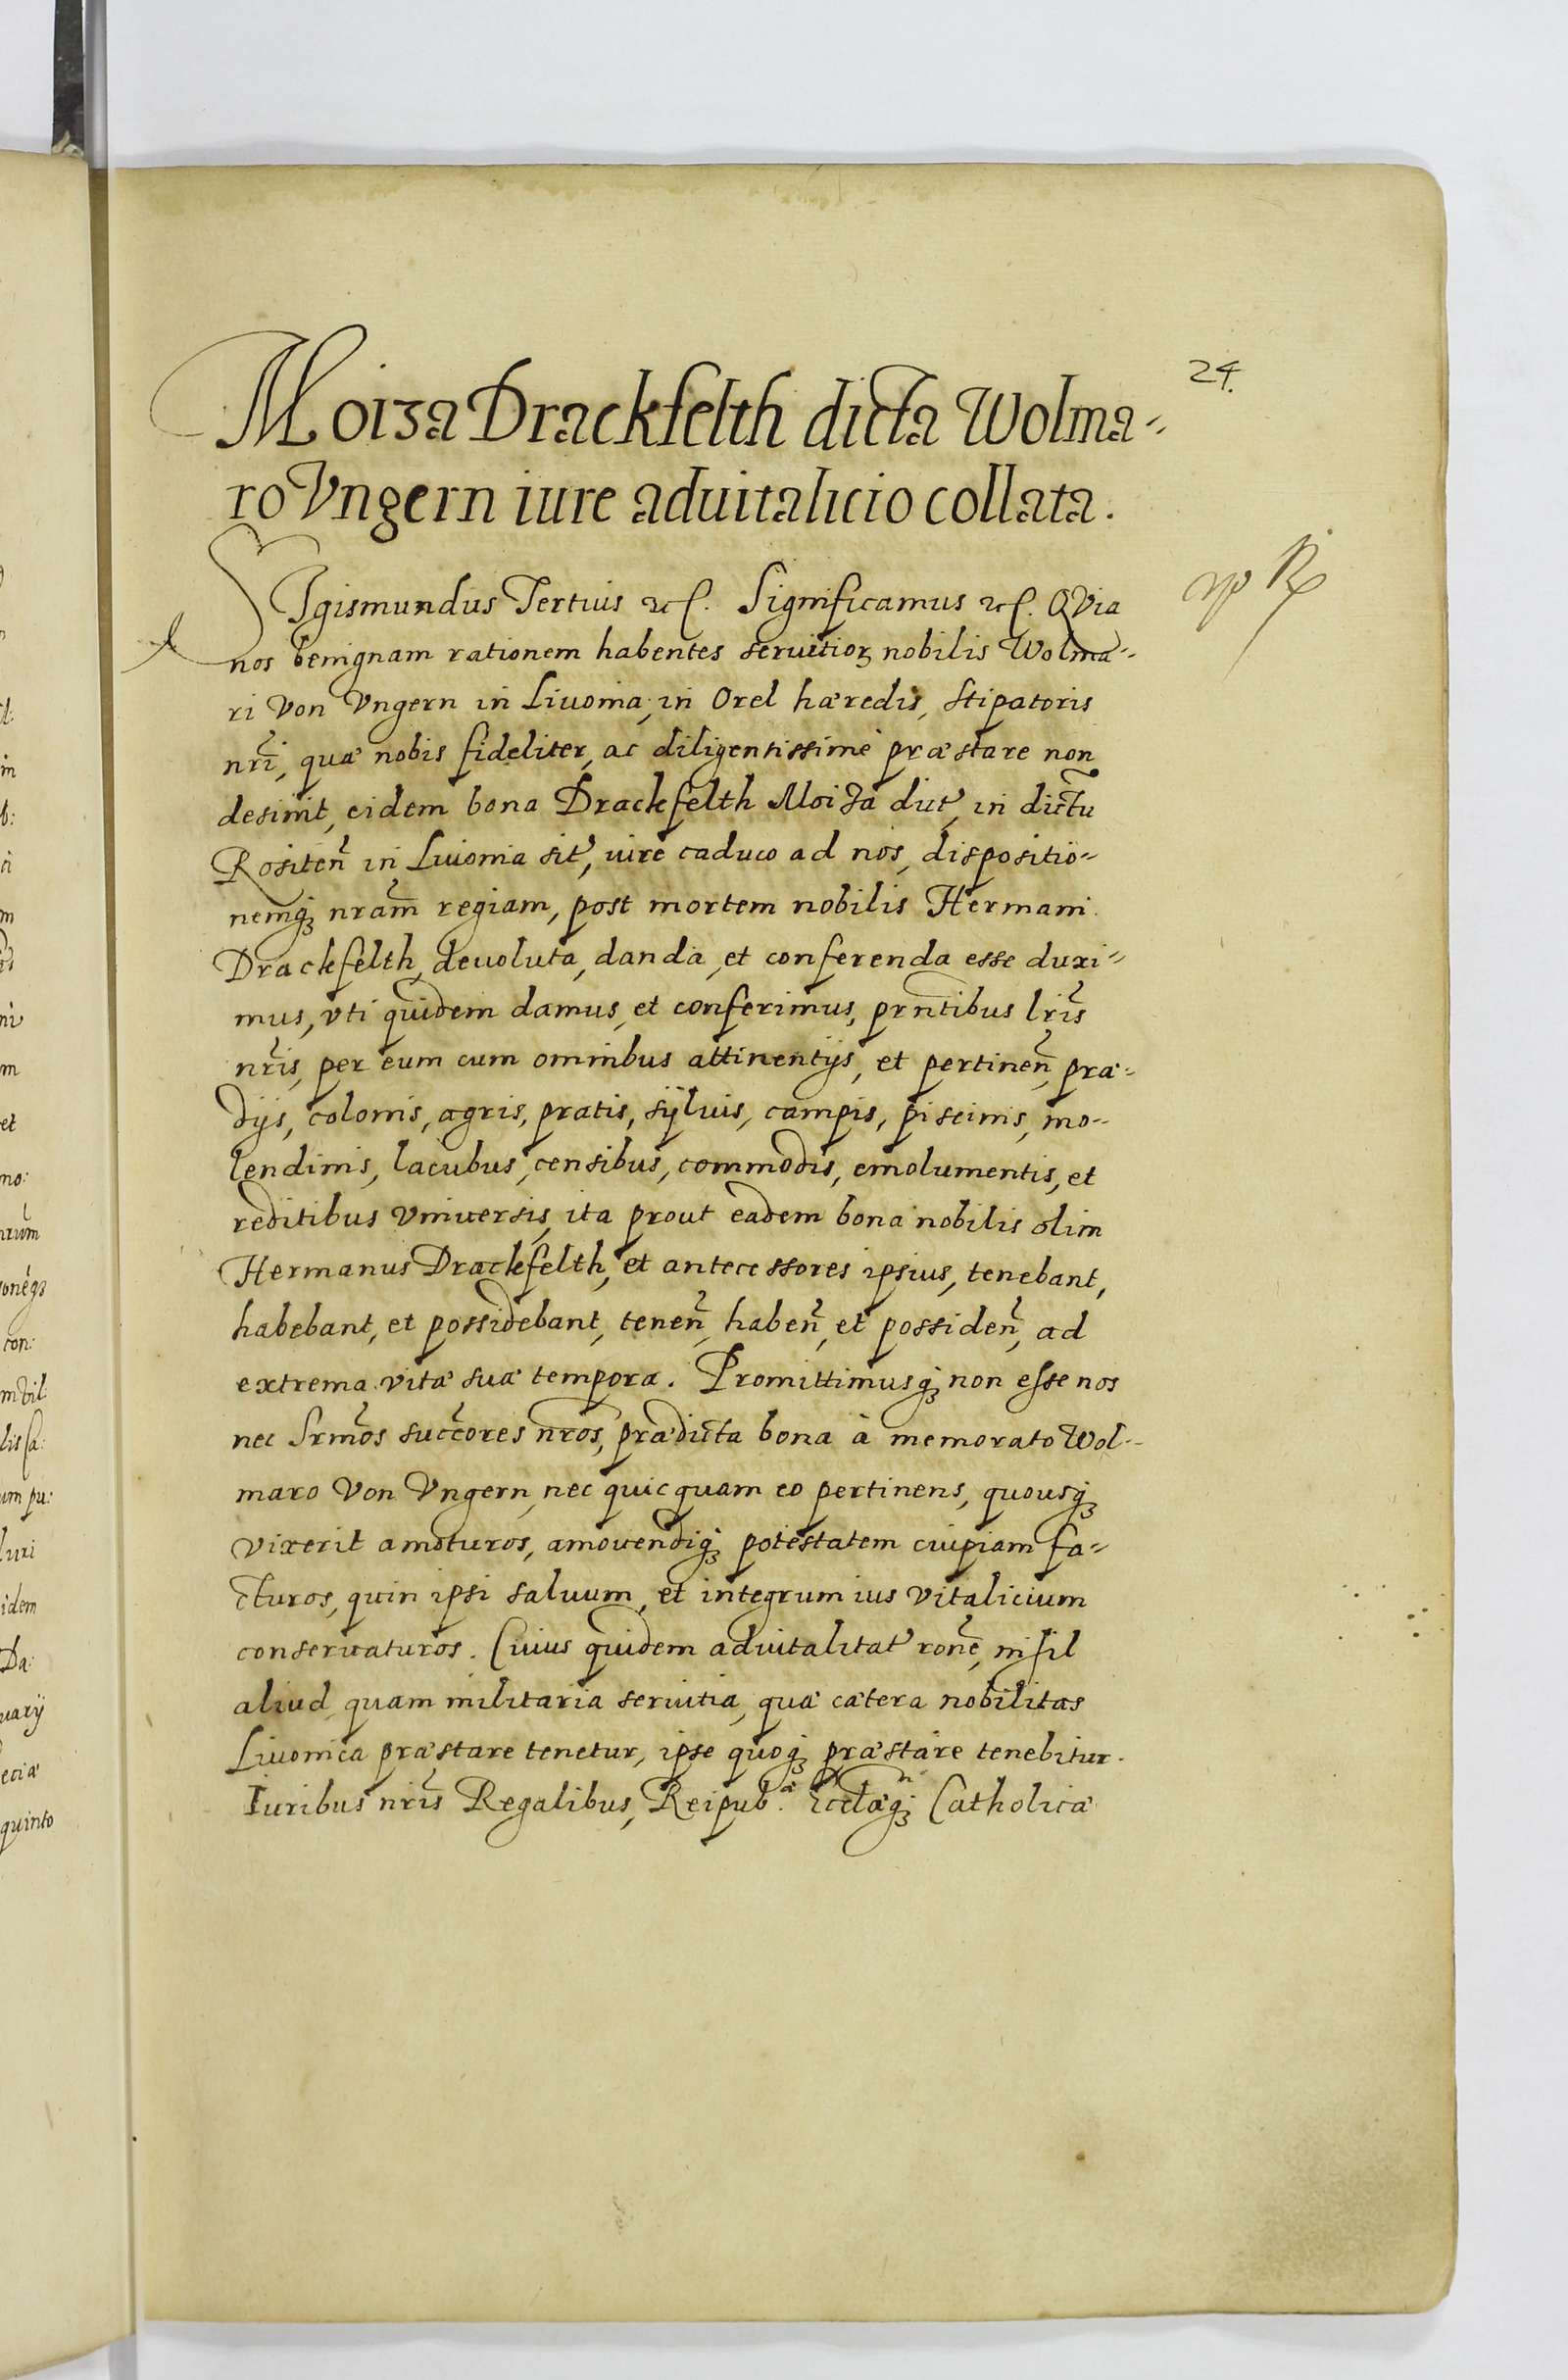 24.
Moiza Drackfelth dicta Wolma=
ro Vngern iure aduitalicio collata.
SIgismundus Tertius etc. Significamus etc. QVia
nos benignam rationem habentes seruitioꝝ nobilis Wolma=
ri Von Vngern in Liuonia, in Orel hæredis, Stipatoris
nr̃i, quæ nobis fideliter, ac diligentissimè præstare non
desinit, eidem bona Drackfelth Moiza dict', in dictũ
Rositeñ in Liuonia sit', iure caduco ad nos, dispositio=
nemqꝫ nram̃ regiam, post mortem nobilis Hermani
Drackfelth, deuoluta, danda, et conferenda esse duxi=
mus, vti quidem damus, et conferimus, prñtibus lr̃is
nr̃is, per eum cum omnibus attinentijs, et pertineñ, præ=
dijs, colonis, agris, pratis, syluis, campis, piscinis, mo=
lendinis, lacubus, censibus, commodis, emolumentis, et
reditibus vniuersis, ita prout eadem bona nobilis olim
Hermanus Drackfelth, et antecessores ipsius, tenebant,
habebant, et possidebant, teneñ, habeñ, et possideñ, ad
extrema vitæ suæ tempora. Promittimusqꝫ non esse nos
nec Srm̃os succ̃ores nr̃os, prædicta bona à memorato Wol=
maro Von Vngern, nec quicquam eo pertinens, quousqꝫ
vixerit amoturos, amouendiqꝫ potestatem cuipiam fa=
cturos, quin ipsi saluum, et integrum ius vitalicium
conseruaturos. Cuius quidem aduitalitat' roñe, nihil
aliud quam militaria seruitia, quæ cætera nobilitas
Liuonica præstare tenetur, ipse quoqꝫ præstare tenebitur.
Iuribus nr̃is Regalibus, Reipub.æ Ecclæqꝫ Catholicæ